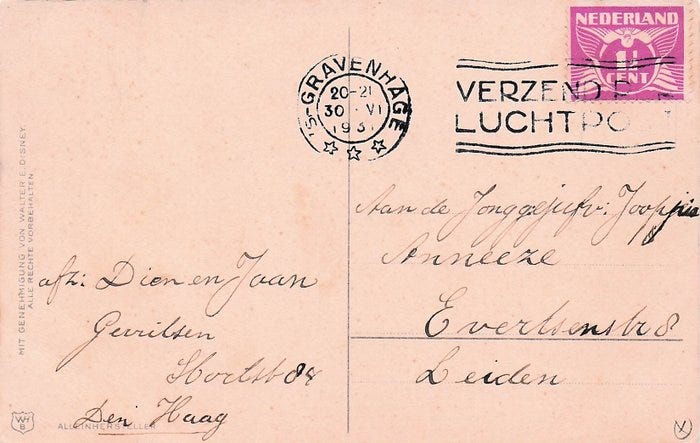 NEDERLAND
1½
CENT
'S-GRAVENHAGE
20-21
30 VI
193
VERZEND PER
LUCHTPOST
MIT GENEHMIGUNG VON WALTER E. DISNEY.
ALLE RECHTE VORBEHALTEN.
Aan de Jonggejufv: Jooppie
Anneeze
Evertsenstr 8
Leiden
afz: Dien en Jaan
Gerritsen
Den Haag
WH
B
ALLEINHERSTELLER